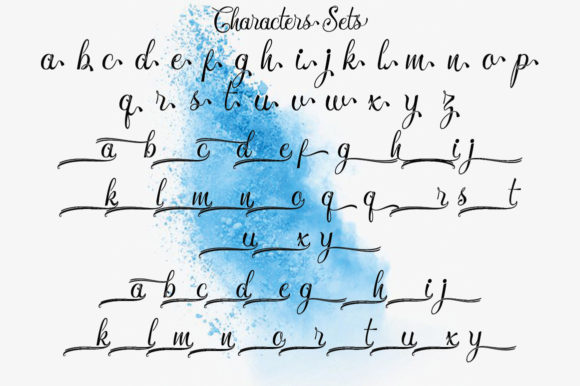 Characters Sets
a b c d e f g h i j k l m n o p
q r s t u v w x y z
a b c d e f g h i j
k l m n o q q r s t
u x y
a b c d e g h i j
k l m n o r t u x y